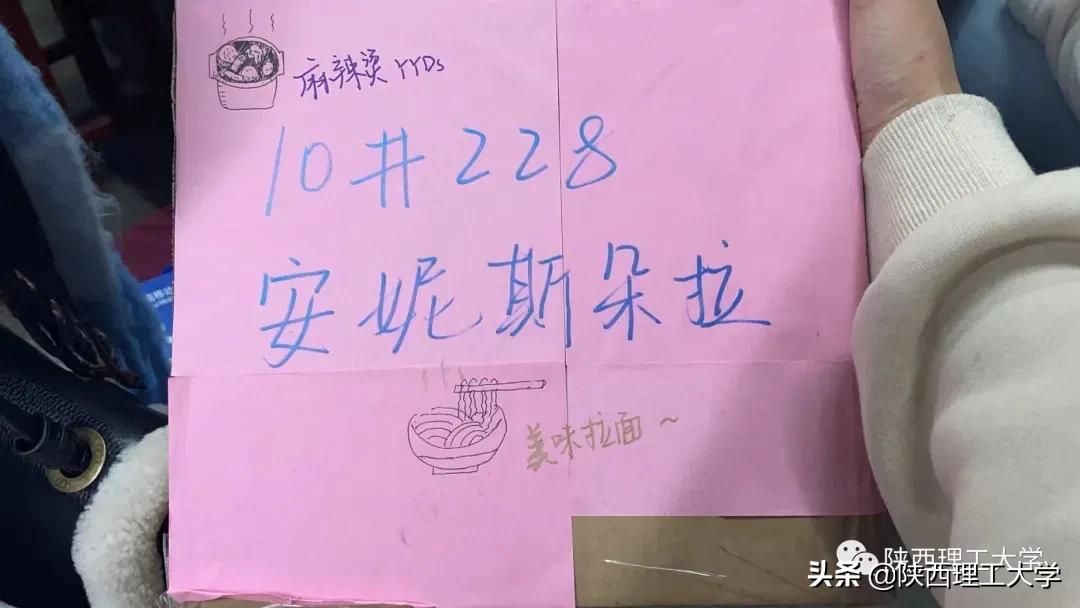 麻辣烫 YYDs
10井228
安妮斯朵拉
美味拉面~
陕西理工大学
头条 @陕西理工大学